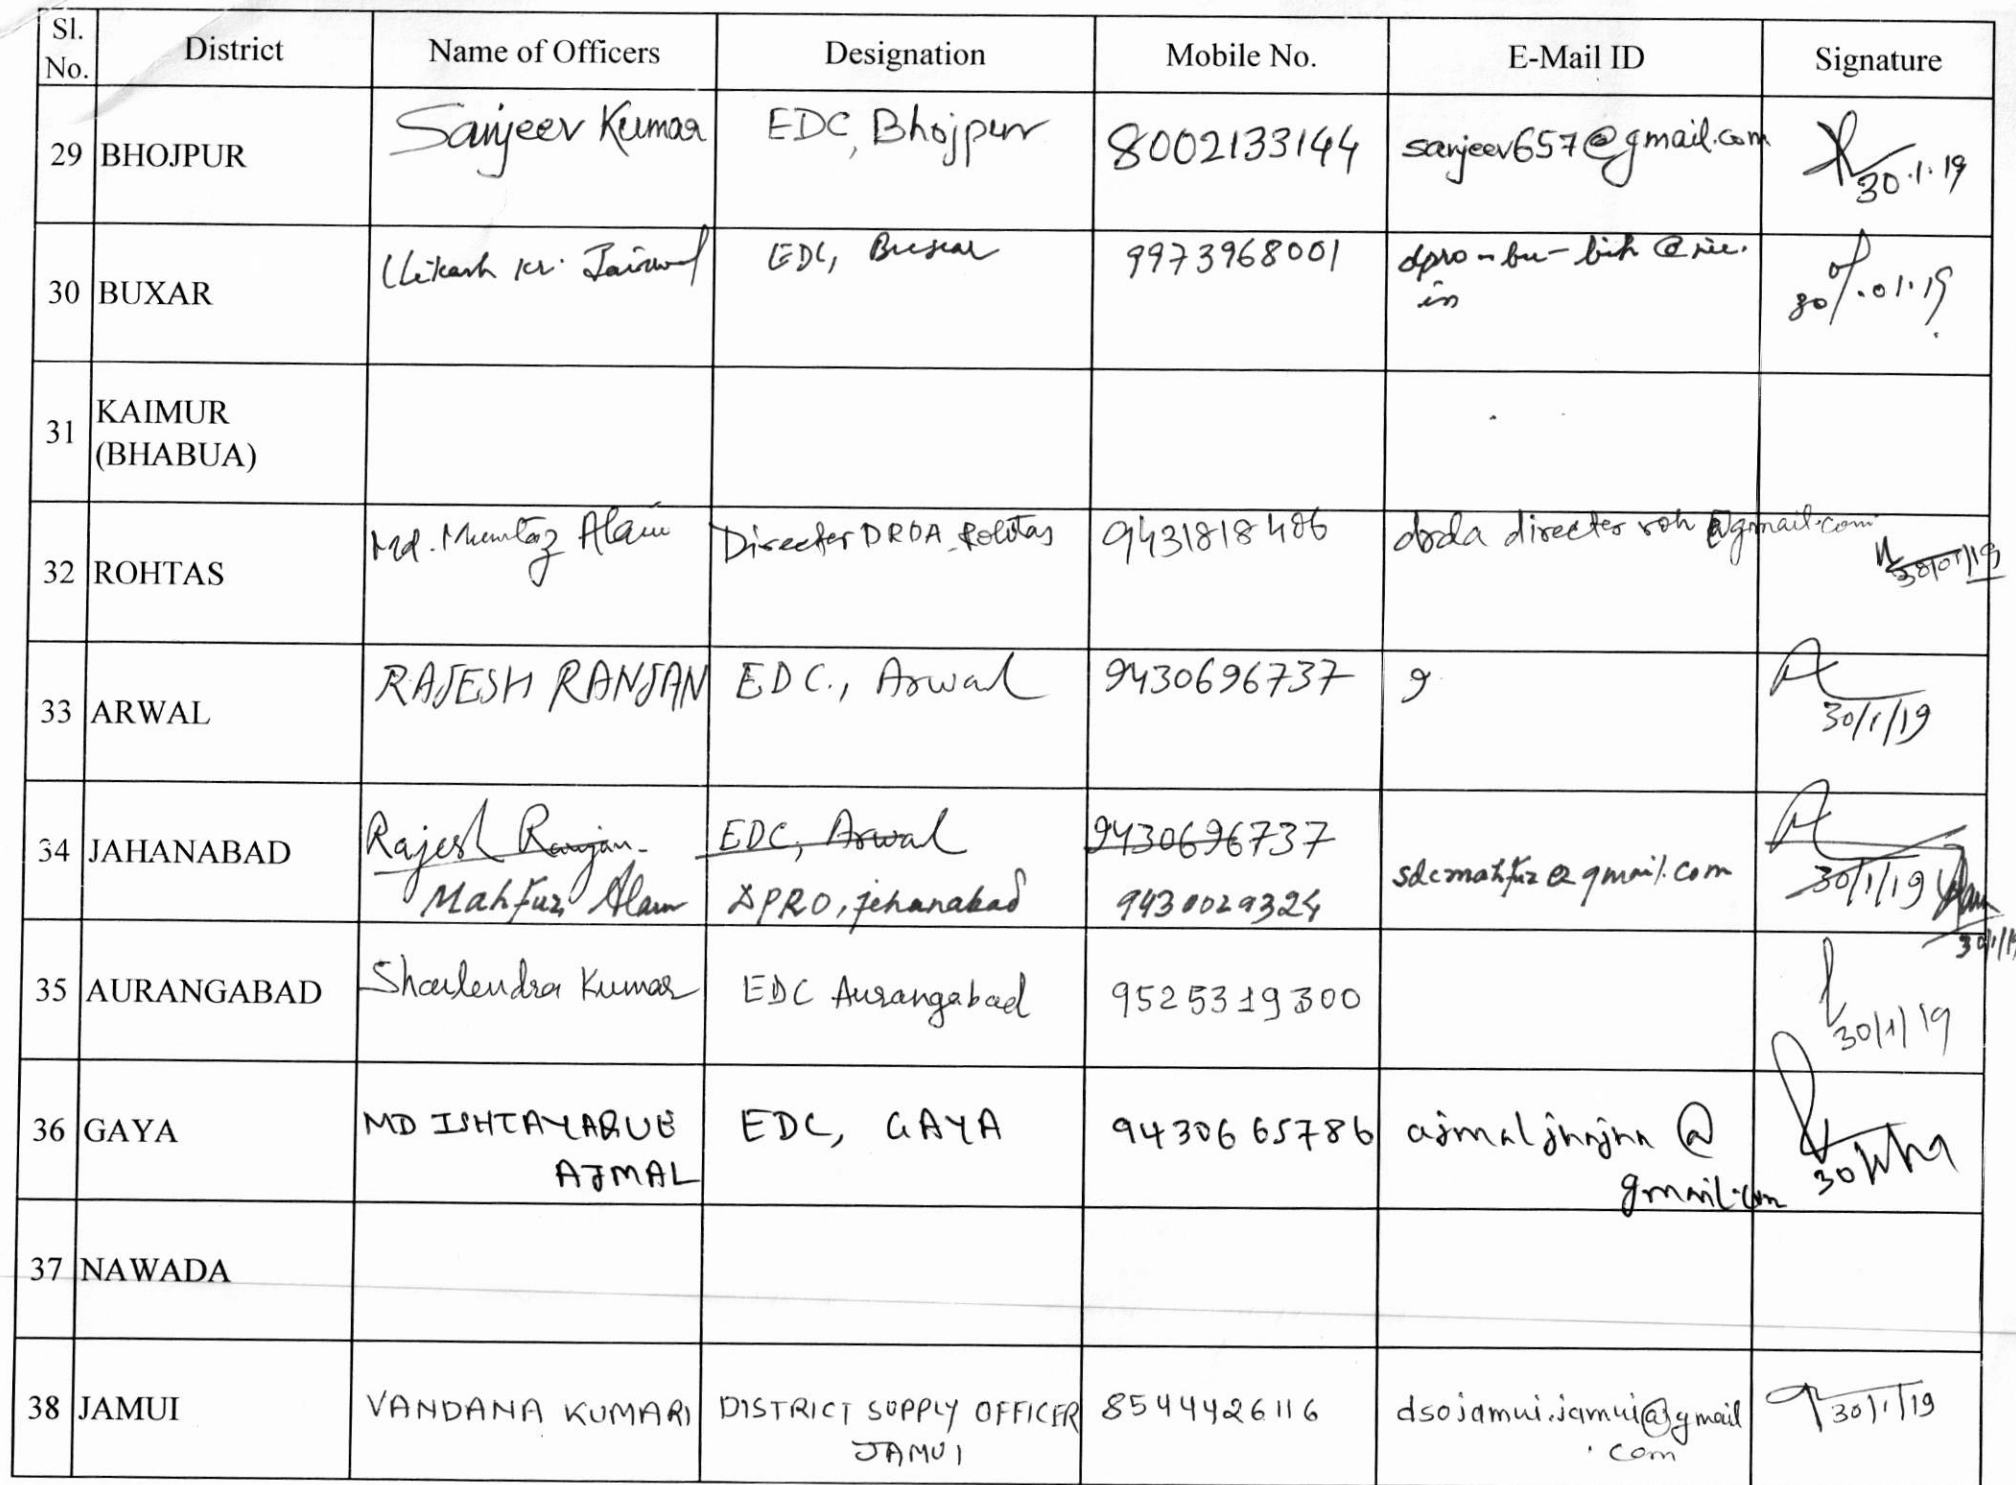 Sl. No. District Name of Officers Designation Mobile No. E-Mail ID Signature
29 BHOJPUR Sanjeev Kumar EDC, Bhojpur 8002133144 sanjeev657@gmail.com 30.1.19
30 BUXAR Kr. EDC, Buxar 9973968001 dpro-bu-bih@nic.
in 30.01.19
31 KAIMUR
(BHABUA)
32 ROHTAS Md. Mumtaz Alam Director DRDA Rohtas 9431818406 drda director roh @gmail.com 30/01/19
33 ARWAL RAJESH RANJAN EDC., Arwal 9430696737 9 30/1/19
34 JAHANABAD Rajesh Ranjan EDC, Arwal 9430696737 30/1/19
Mahfuz Alam DPRO, jehanabad 9430029324 sdcmahfuz@gmail.com 30/1/19
35 AURANGABAD Shailendra Kumar EDC Aurangabad 9525319300 30/1/19
36 GAYA MD ISHTAYAQUE EDC, GAYA 9430665786 ajmaljhajha@
AJMAL gmail.com
37 NAWADA
38 JAMUI VANDANA KUMARI DISTRICT SUPPLY OFFICER 8544426116 dsojamui.jamui@gmail 30/1/19
JAMUI .com